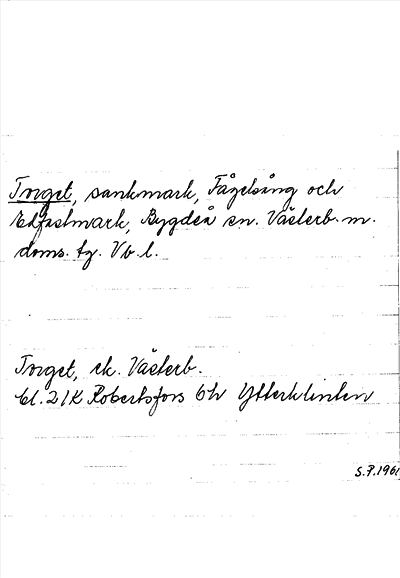 Torget, sankmark, Fågelsång och
Edfastmark, Bygdeå sn. Västerb. m.
doms. tg. Vb l.
Torget, ek. Västerb.
bl. 21K Robertsfors 6h Ytterklinten
S.P. 1961